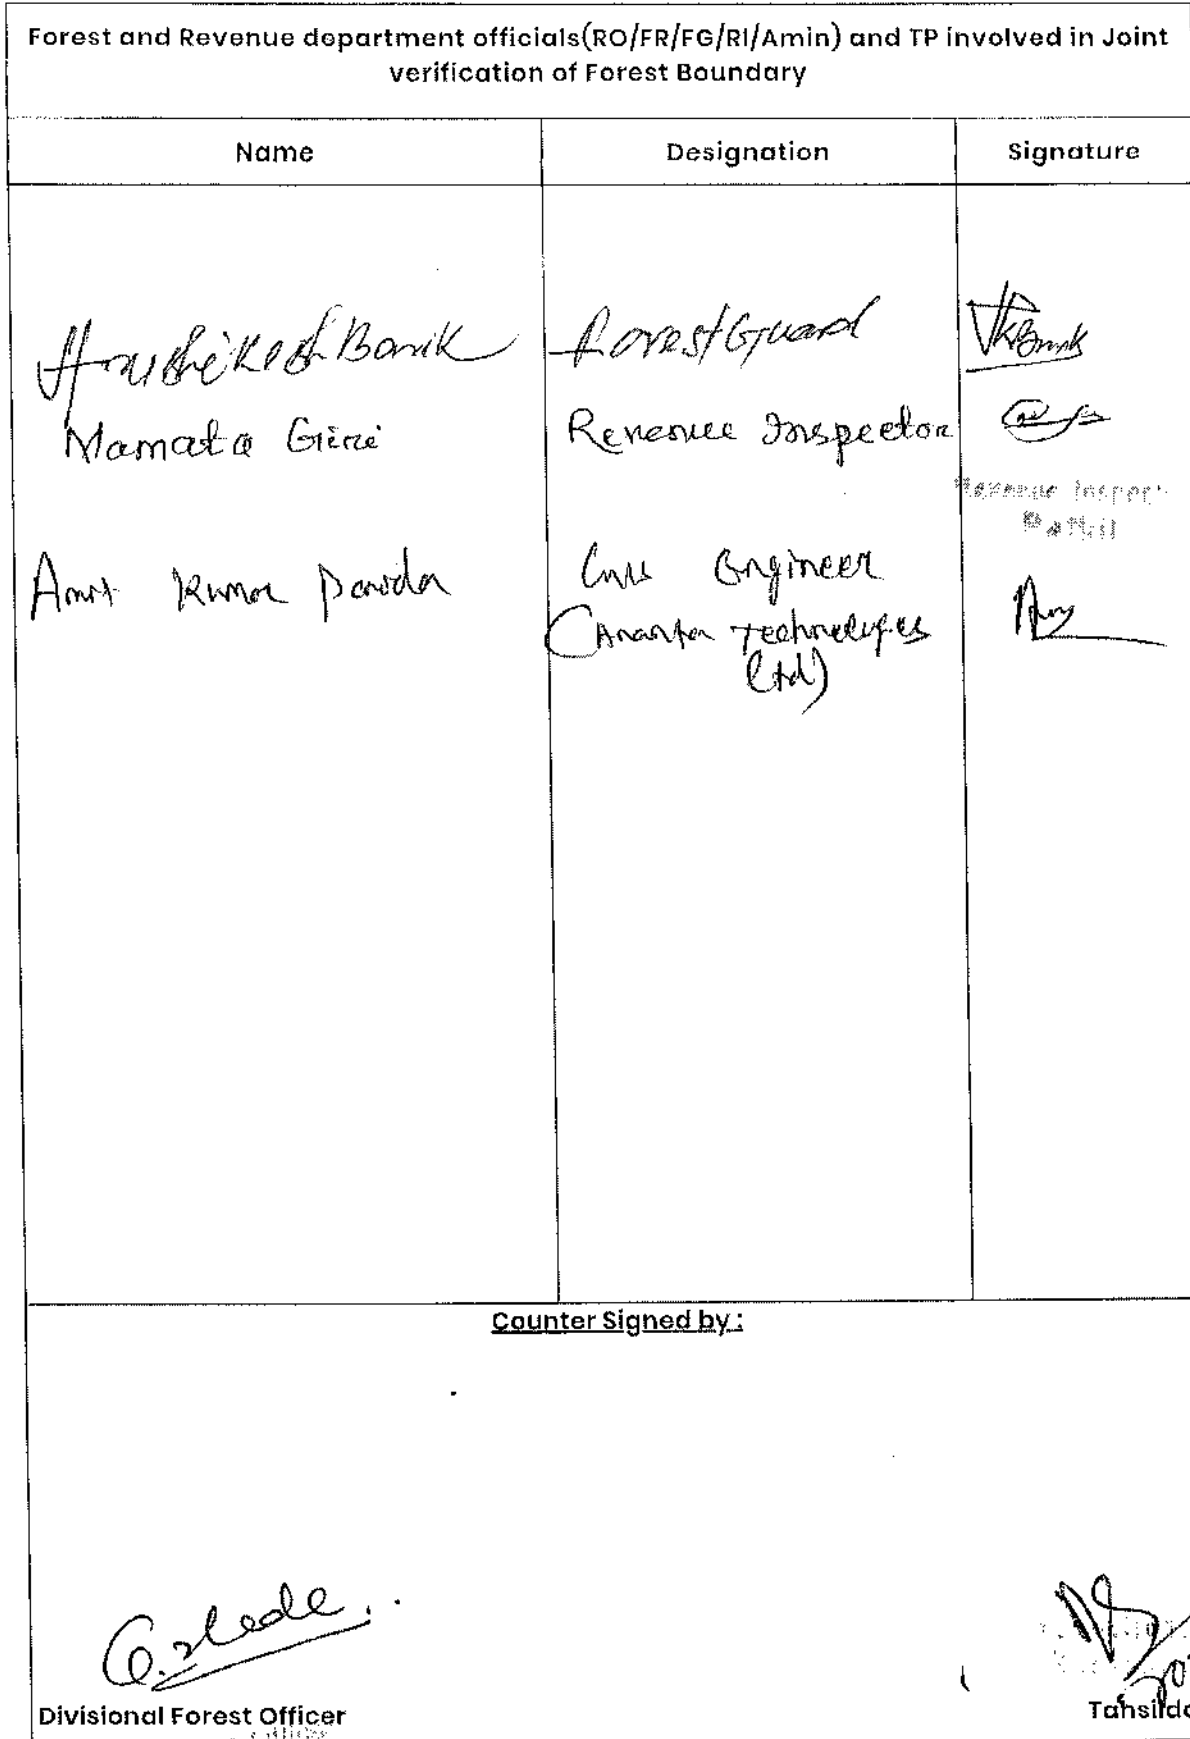 Forest and Revenue department officials(RO/FR/FG/RI/Amin) and TP involved in Joint
verification of Forest Boundary
Name Designation Signature
Hrushikesh Barik Forest Guard
Mamata Giri Revenue Inspector
Revenue Inspec
Amit Kumar Parida Engineer
(Ananta Technologies
Ltd)
Counter Signed by :
Divisional Forest Officer Tahsilda